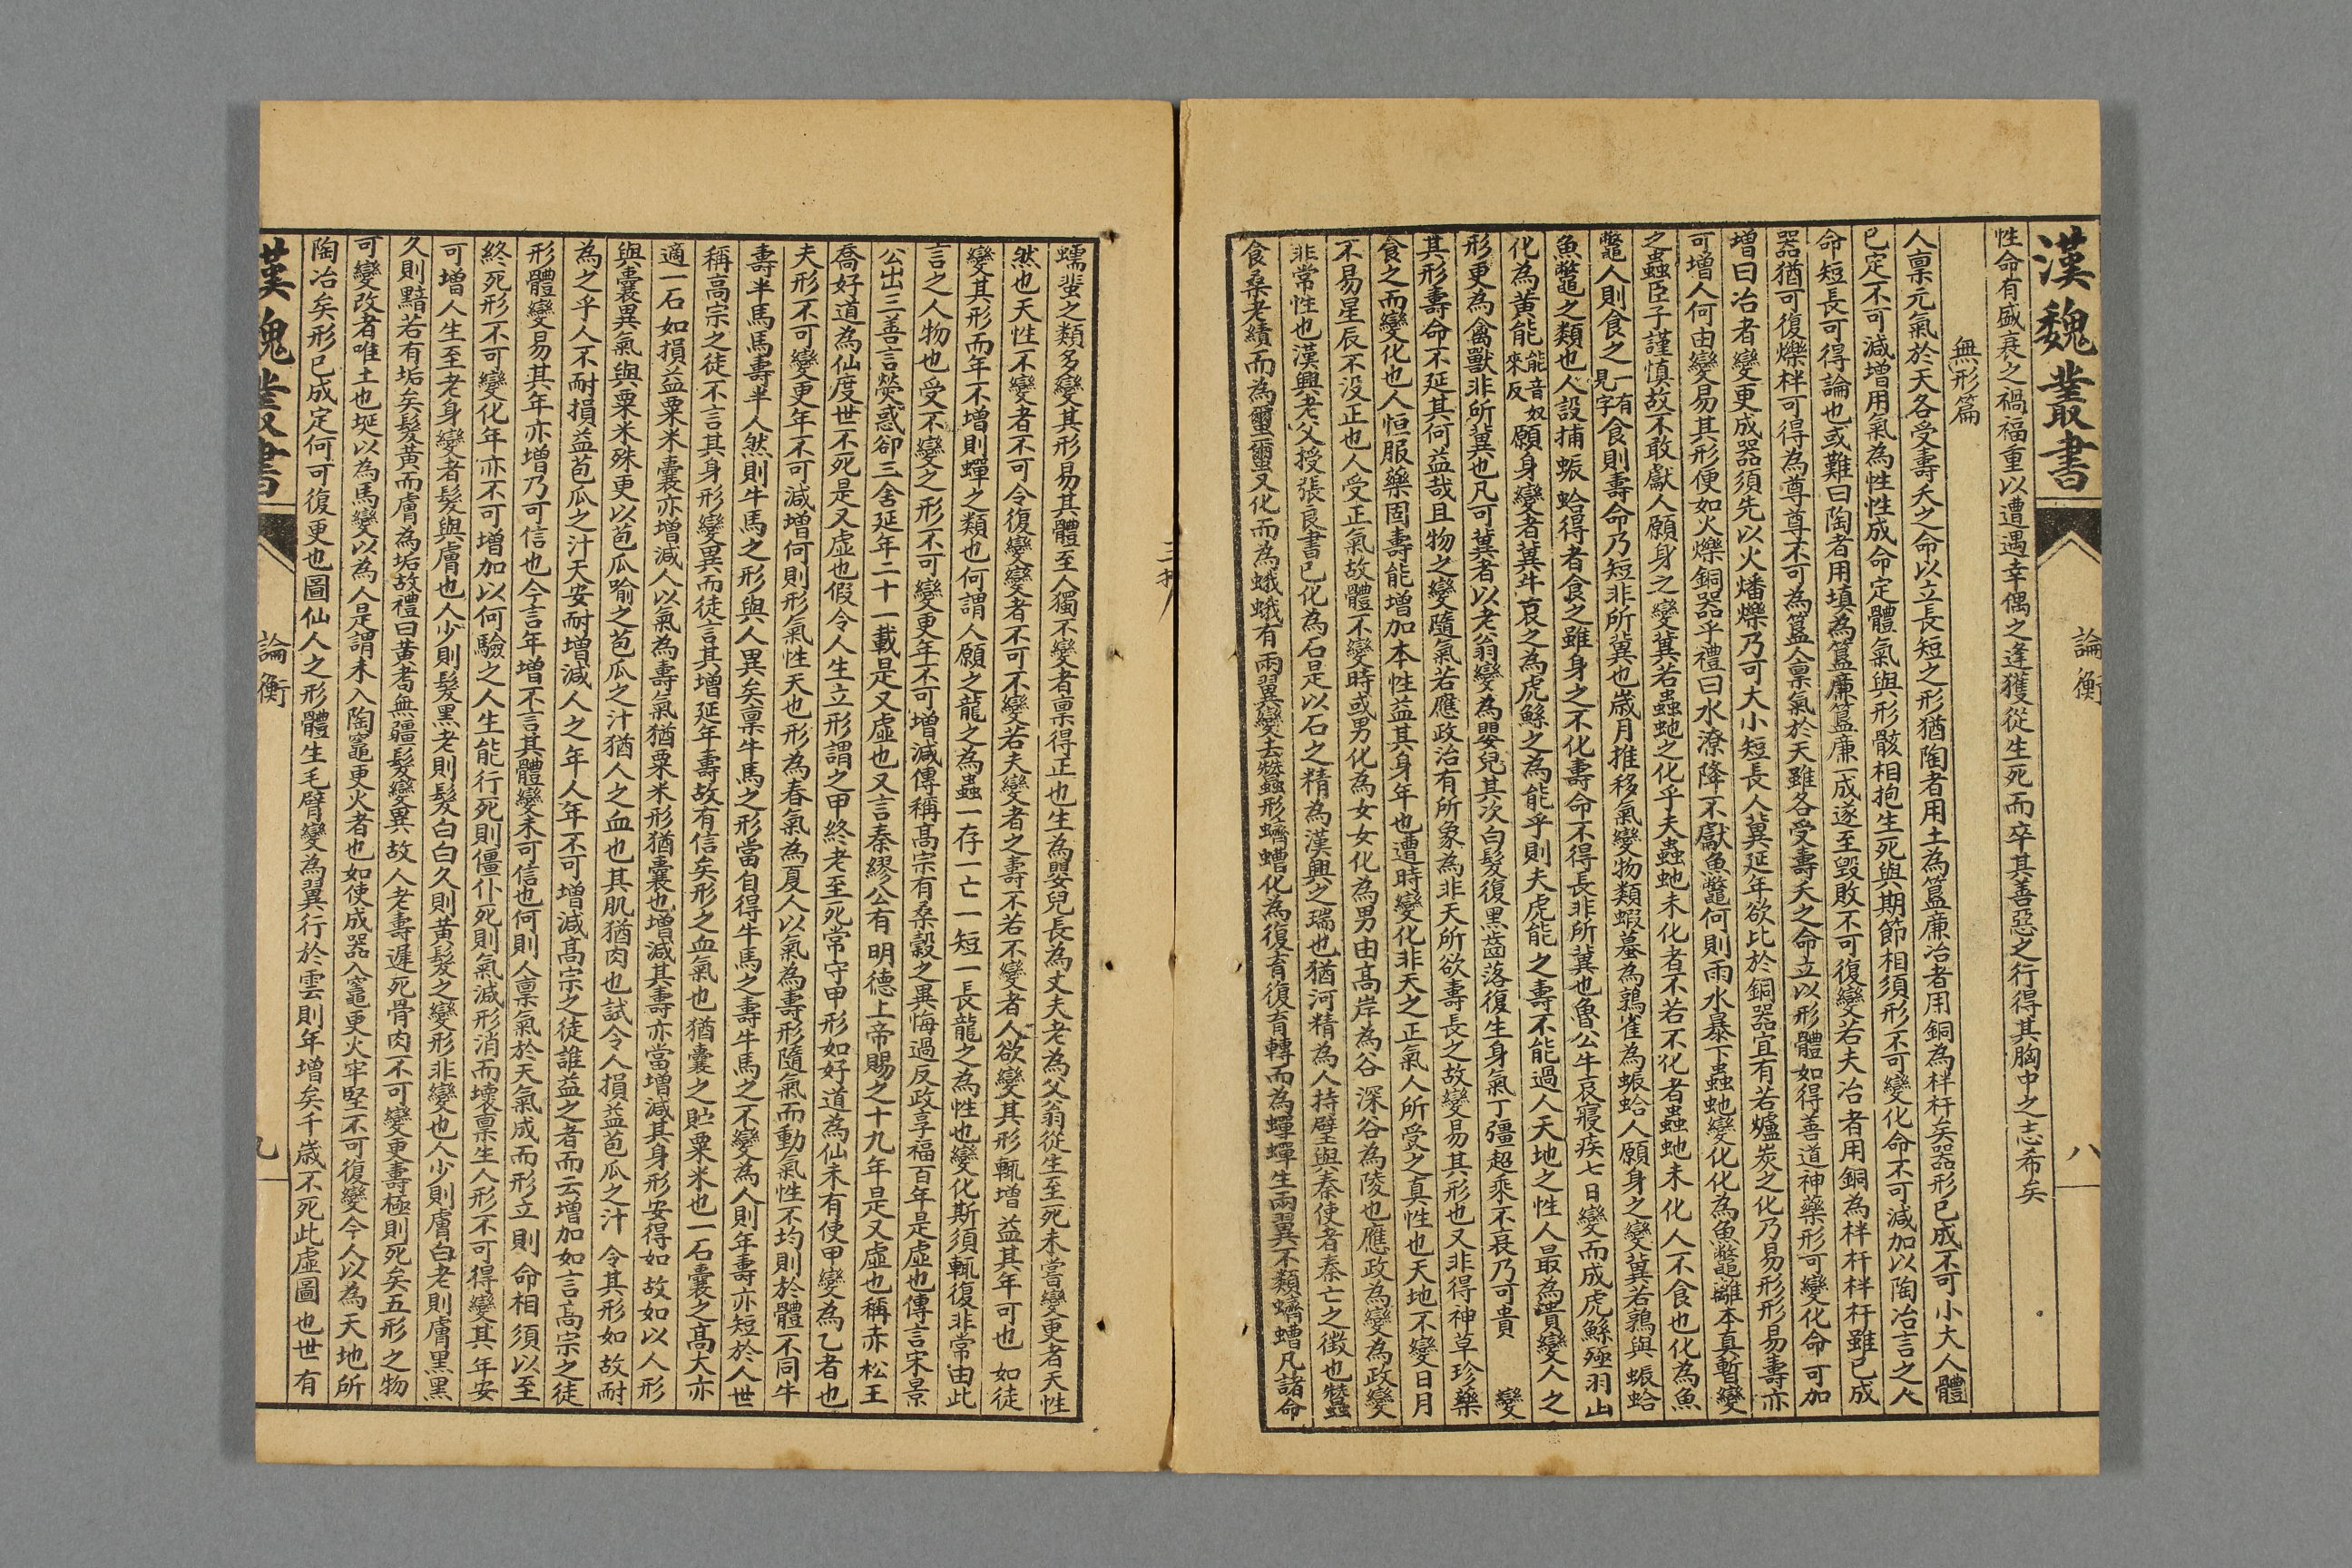 漢魏叢書
論衡
八
性命有盛衰之禍福重以遭遇幸偶之逢獲從生死而卒其善惡之行得其胸中之志希矣
無形篇
人禀元氣於天各受壽夭之命以立長短之形猶陶者用土為簋廉冶者用銅為柈杅矣器形已成不可小大人體
已定不可減增用氣為性性成命定體氣與形骸相抱生死與期節相須形不可變化命不可減加以陶冶言之人
命短長可得論也或難曰陶者用埴為簋廉簋廉一成遂至毀敗不可復變若夫冶者用銅為柈杅柈杅雖已成
器猶可復爍柈可得為尊尊不可為簋人禀氣於天雖各受壽夭之命立以形體如得善道神藥形可變化命可加
增曰冶者變更成器須先以火燔爍乃可大小短長人冀延年欲比於銅器宜有若爐炭之化乃易形形易壽亦
可增人何由變易其形便如火爍銅器乎禮曰水潦降不獻魚鼈何則雨水暴下蟲虵變化化為魚鼈離本真暫變
之蟲臣子謹慎故不敢獻人願身之變冀若蟲虵之化乎夫蟲虵未化者不若不化者蟲虵未化人不食也化為魚
鼈人則食之一有見字食則壽命乃短非所冀也歲月推移氣變物類蝦蟇為鶉雀為蜄蛤人願身之變冀若鶉與蜄蛤
魚鼈之類也人設捕蜄蛤得者食之雖身之不化壽命不得長非所冀也魯公牛哀寢疾七日變而成虎鯀殛羽山
化為黃能能音奴來反願身變者冀牛哀之為虎鯀之為能乎則夫虎能之壽不能過人天地之性人最為貴變人之
形更為禽獸非所冀也凡可冀者以老翁變為嬰兒其次白髮復黑齒落復生身氣丁彊超乘不衰乃可貴 變
其形壽命不延其何益哉且物之變隨氣若應政治有所象為非天所欲壽長之故變易其形也又非得神草珍藥
食之而變化也人恒服藥固壽能增加本性益其身年也遭時變化非天之正氣人所受之真性也天地不變日月
不易星辰不没正也人受正氣故體不變時或男化為女女化為男由高岸為谷深谷為陵也應政為變為政變
非常性也漢興老父授張良書已化為石是以石之精為漢興之瑞也猶河精為人持璧與秦使者秦亡之徵也蠶
食桑老績而為蠒蠒又化而為蛾蛾有兩翼變去蠶形蠐螬化為復育復育轉而為蟬蟬生兩翼不類蠐螬凡諸命
蠕蜚之類多變其形易其體至人獨不變者禀得正也生為嬰兒長為丈夫老為父翁從生至死未嘗變更者天性
然也天性不變者不可令復變變者不可不變若夫變者之壽不若不變者人欲變其形輒增益其年可也如徒
變其形而年不增則蟬之類也何謂人願之龍之為蟲一存一亡一短一長龍之為性也變化斯須輒復非常由此
言之人物也受不變之形不可變更年不可增減傳稱高宗有桑穀之異悔過反政享福百年是虛也傳言宋景
公出三善言熒惑卻三舍延年二十一載是又虛也又言秦繆公有明德上帝賜之十九年是又虛也稱赤松王
喬好道為仙度世不死是又虛也假令人生立形謂之甲終老至死常守甲形如好道為仙未有使甲變為乙者也
夫形不可變更年不可減增何則形氣性天也形為春氣為夏人以氣為壽形隨氣而動氣性不均則於體不同牛
壽半馬馬壽半人然則牛馬之形與人異矣禀牛馬之形當自得牛馬之壽牛馬之不變為人則年壽亦短於人世
稱高宗之徒不言其身形變異而徒言其增延年壽故有信矣形之血氣也猶囊之貯粟米也一石囊之高大亦
適一石如損益粟米囊亦增減人以氣為壽氣猶粟米形猶囊也增減其壽亦當增減其身形安得如故如以人形
與囊異氣與粟米殊更以苞瓜喻之苞瓜之汁猶人之血也其肌猶肉也試令人損益苞瓜之汁令其形如故耐
為之乎人不耐損益苞瓜之汁天安耐增減人之年人年不可增減高宗之徒誰益之者而云增加如言高宗之徒
形體變易其年亦增乃可信也今言年增不言其體變未可信也何則人禀氣於天氣成而形立則命相須以至
終死形不可變化年亦不可增加以何驗之人生能行死則僵仆死則氣減形消而壞禀生人形不可得變其年安
可增人生至老身變者髮與膚也人少則髮黑老則髮白白久則黃髮之變形非變也人少則膚白老則膚黑黑
久則黯若有垢矣髮黃而膚為垢故禮曰黃耉無疆髮變異故人老壽遲死骨肉不可變更壽極則死矣五形之物
可變改者唯土也埏以為馬變以為人是謂未入陶竈更火者也如使成器入竈更火牢堅不可復變今人以為天地所
陶冶矣形已成定何可復更也圖仙人之形體生毛臂變為翼行於雲則年增矣千歲不死此虛圖也世有
漢魏叢書
論衡
九